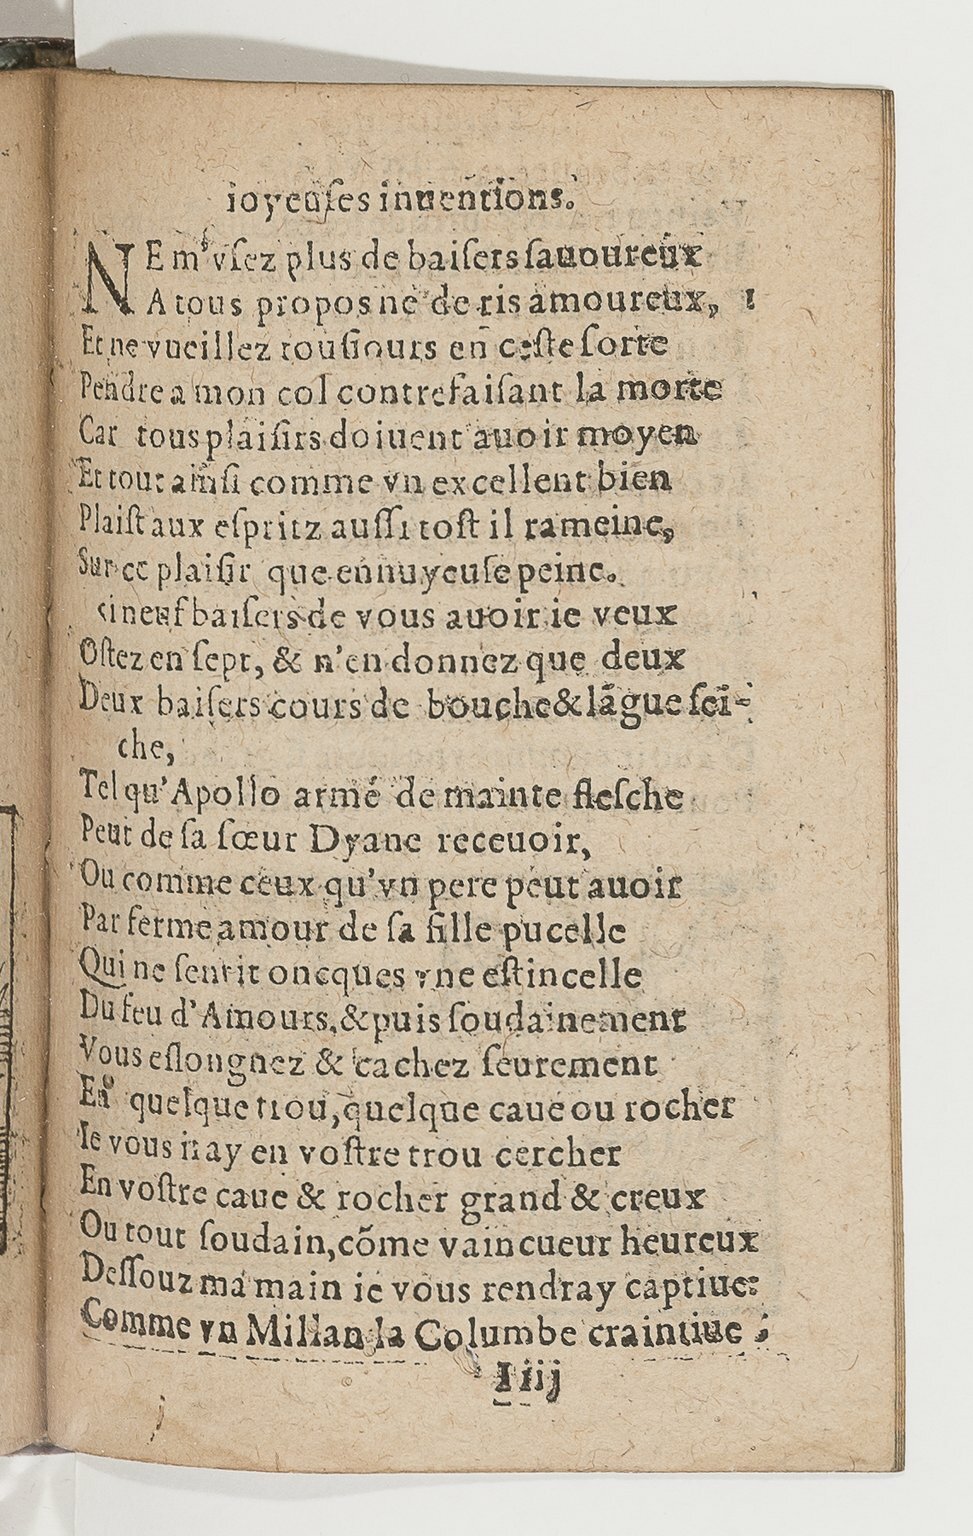 ioyeuſes inuentions.
NE m'vſez plus de baiſers ſauoureux
A tous propos ne de ris amoureux,
Et ne vueillez touſiours en ceſte ſorte
Pendre a mon col contrefaiſant la morte
Car tous plaiſirs doiuent auoir moyen
Et tout ainſi comme vn excellent bien
Plaiſt aux eſpritz auſſi toſt il rameine,
Sur ce plaiſir que ennuyeuſe peine.
ſi neuf baiſers de vous auoir ie veux
Oſtez en ſept, & n'en donnez que deux
Deux baiſers cours de bouche & lãgue ſei-
che,
Tel qu'Apollo armé de mainte fleſche
Peut de ſa ſœur Dyane receuoir,
Ou comme ceux qu'vn pere peut auoir
Par ferme amour de ſa fille pucelle
Qui ne ſentit oncques vne eſtincelle
Du feu d'Amours, & puis ſoudainement
Vous eſlongnez & cachez ſeurement
En quelque trou, quelque caue ou rocher
Ie vous iray en voſtre trou cercher
En voſtre caue & rocher grand & creux
Ou tout ſoudain, cõme vaincueur heureux
Deſſouz ma main ie vous rendray captiue:
Comme vn Millan la Columbe craintiue ;
I iij